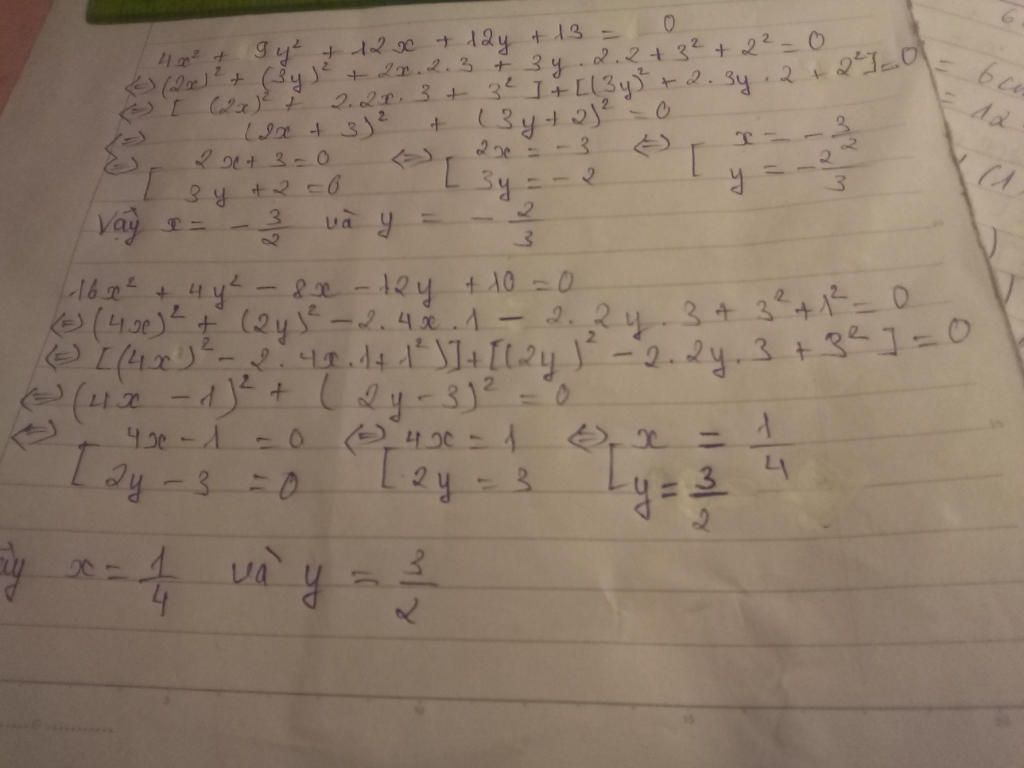 4x² + 9y² + 12x + 12y + 13 = 0
⇔ (2x)² + (3y)² + 2x.2.3 + 3y.2.2 + 3² + 2² = 0
⇔ [(2x)² + 2.2x.3 + 3²] + [(3y)² + 2.3y.2 + 2²] = 0
⇔ (2x + 3)² + (3y + 2)² = 0
⇔ [ 2x + 3 = 0 ⇔ [ 2x = -3 ⇔ [ x = -3/2
3y + 2 = 0 3y = -2 y = -2/3
Vậy x = -3/2 và y = -2/3
16x² + 4y² - 8x - 12y + 10 = 0
⇔ (4x)² + (2y)² - 2.4x.1 - 2.2y.3 + 3² + 1² = 0
⇔ [(4x)² - 2.4x.1 + 1²)] + [(2y)² - 2.2y.3 + 3²] = 0
⇔ (4x - 1)² + (2y - 3)² = 0
⇔ [ 4x - 1 = 0 ⇔ [ 4x = 1 ⇔ [ x = 1/4
2y - 3 = 0 2y = 3 y = 3/2
ậy x = 1/4 và y = 3/2
6 cm
= 12
(1